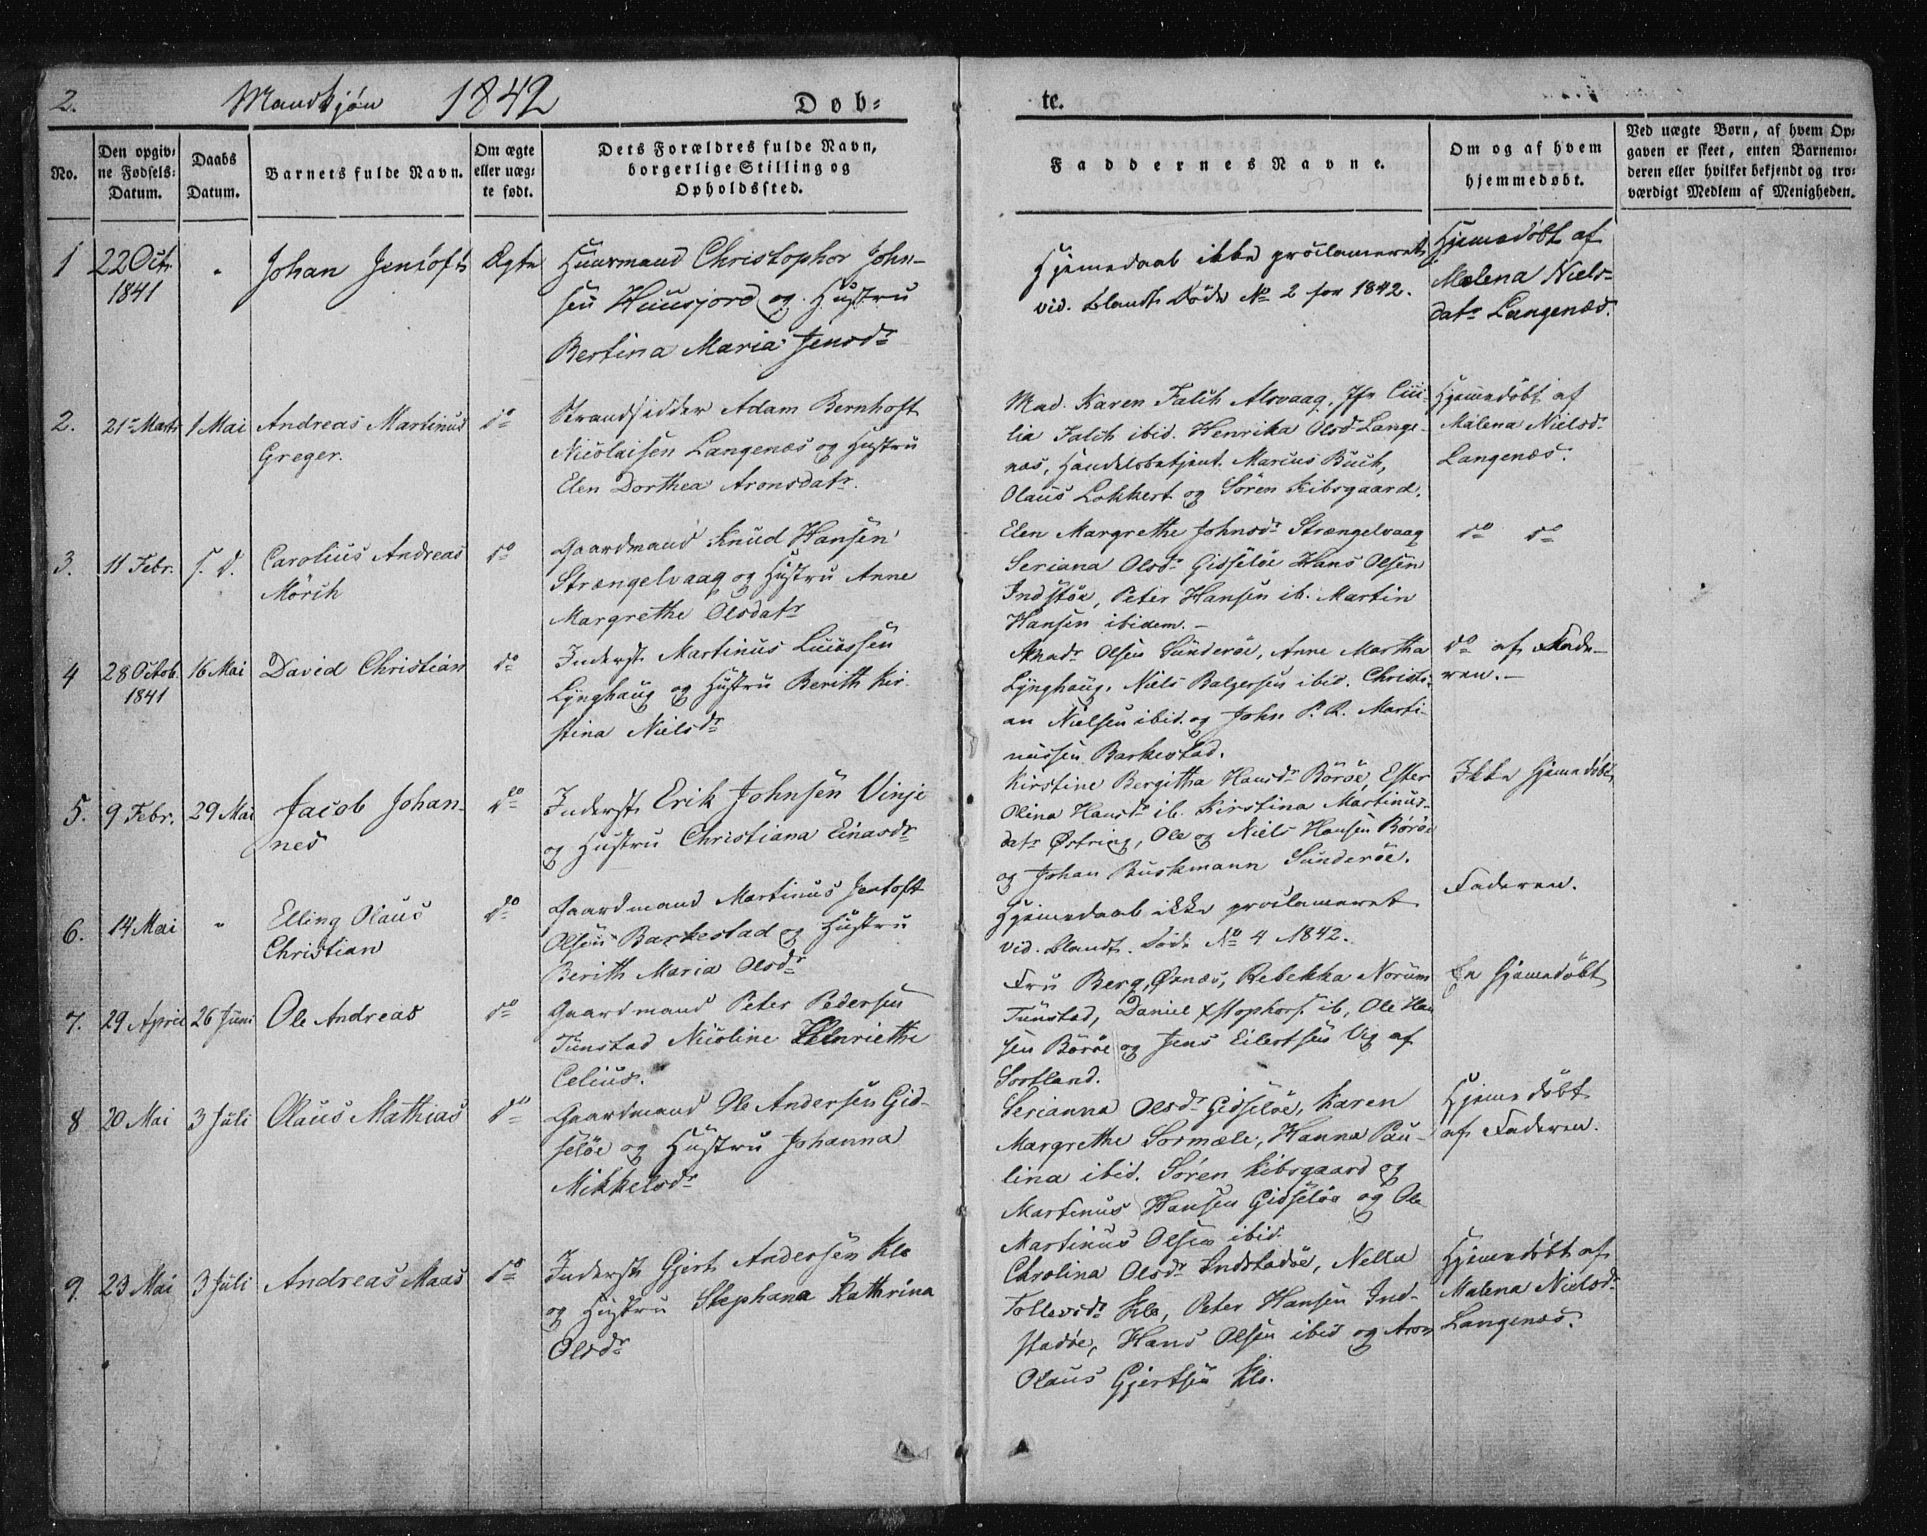 2. Mandkjön 1842 Døb-
te.
No.
Den opgiv-
ne Fødsels-
Datum.
Daabs
Datum.
Barnets fulde Navn.
Om ægte
eller uæg-
te født.
Dets Forældres fulde Navn,
borgerlige Stilling og
Opholdssted.
Faddernes Navne.
Om og af hvem
hjemmedøbt.
Ved uægte Børn, af hvem Op-
gaven er skeet, enten Barnemo-
deren eller hvilket bekjendt og tro-
værdigt Medlem af Menigheden.
1
22 Octr
1841
"
Johan Jentoft
Ægte
Huusmand Christophor John-
sen Huusjord og Hustru
Bertina Maria Jensdr
Hjemedaab ikke proclameret
vid. blandt Døde No 2 for 1842.
Hjemedöbt af
Malena Niels-
datr Langenæs.
2.
21 Marts
1 Mai
Andreas Martinus
Greger.
do
Strandsidder Adam Bernhoft
Nicolaisen Langenæs og Hustru
Elen Dorthea Aronsdatr.
Mad. Karen Falch Alsvaag, Jfr Ceci-
lia Falch ibid. Henrika Olsdr Lange-
næs, Handelsbetjent Marcus Buch,
Olaus Lokkert og Sören Kibsgaard.
Hjemedöbt af
Malena Nielsdr
Langenæs.
3.
11 Febr.
s. d.
Carolius Andreas
Mörch
do
Gaardmand Knud Hansen
Strængelvaag og Hustru Anne
Margrethe Olsdatr
Elen Margrethe Johnsdr Strængelvaag
Seriana Olsdr Gisslöe Hans Olsen
Indstöe, Peter Hansen ib. Martin
Hansen ibidem.-
do do
4
28 Octob.
1841
16 Mai
David Christian
do
Inderst Martinus Lucassen
Lynghaug og Hustru Berith Kir-
stina Nielsdr
Olsen Sunderöe, Anne Martha
Lynghaug, Niels Balzersen ibid. Christi-
an Nielsen ibid. og John P. R. Marti-
nussen Barkestad.
do af Fade-
ren.-
5.
9 Febr.
29 Mai
Jacob Johan-
nes
do
Inderst Erik Johnsen Vinje
og Hustru Christiana Einasdr
Kirstine Bergitha Hansdr Böröe, Ester
Olina Hansdr ib. Kirstina Martinus-
datr Østring, Ole og Niels Hansen Böröe
og Johan Buskmann Sunderöe.
Ikke hjemedöbt
6.
14 Mai
"
Elling Olaus
Christian
do
Gaardmand Martinus Jentoft
Olsen Barkestad og Hustru
Berith Maria Olsdr
Hjemedaab ikke proclameret
vid. blandt Döde No 4 1842.
Faderen.
7.
29 April
26 Juni
Ole Andreas
do
Gaardmand Peter Pedersen
Tunstad Nicoline Henriethe
Celius.
Fru Berg, Øsnæs, Rebekka Norum
Tunstad, Daniel Xstophors. ib, Ole Han
sen Böröe og Jens Eilertsen Vig af
Sortland.
Ei hjemedöbt
8
20 Mai
3 Juli
Olaus Mathias
do
Gaardmand Ole Andersen Gid-
selöe og Hustru Johanna
Mikkelsdr
Serianna Olsdr Gidselöe, Karen
Margrethe Sormæle, Hanna Pau-
lina ibid. Sören Kibsgaard og
Martinus Hansen Gidselöe og Ole
Martinus Olsen ibid.
Hjemedöbt
af Faderen.
9.
23 Mai
3 Juli
Andreas Maas
do
Inderst Gjert Andersen Klo
og Hustru Stephana Kathrina
Olsdr
Chrolina Olsdr Indstadöe, Nella
Tollevsdr Klo, Peter Hansen Ind-
stadöe, Hans Olsen ibid og Aron
Olaus Gjertsen Klo.
Hjemedöbt af
Malena Nielsdr
Langenæs.